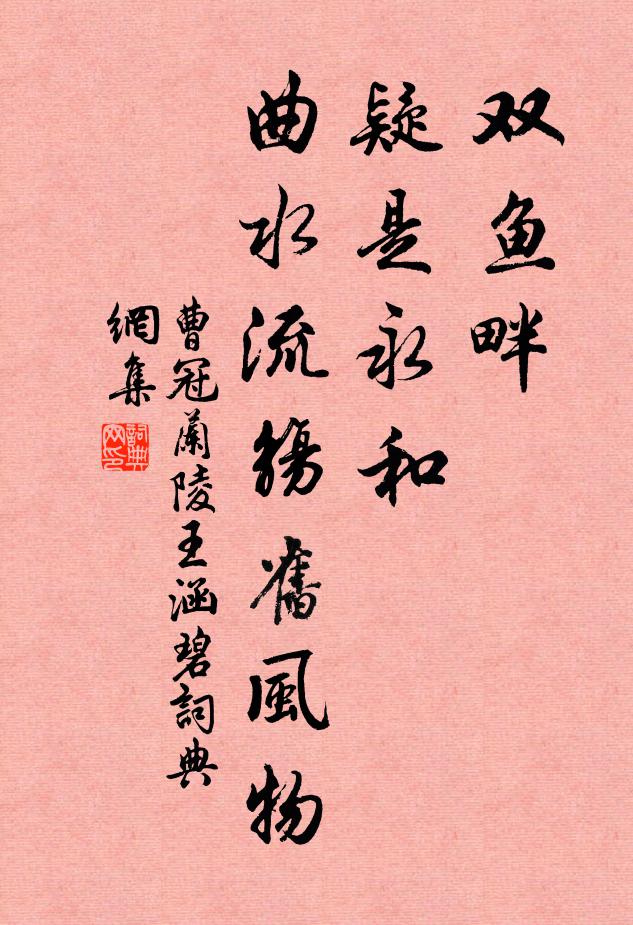 双鱼畔
疑是永和
曲水流觴舊風物
曹冠蘭陵王涵碧詞典
網集
詞典
网印